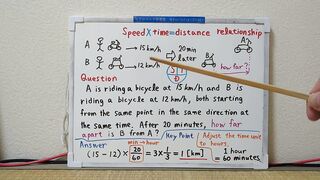 Speed×time=distance relationship
A → 15km/h 20min later A
B → 12km/h B how far?
S T
D
Question
A is riding a bicycle at 15km/h and B is
riding a bicycle at 12km/h, both starting
from the same point in the same direction
at the same time. After 20 minutes, how far
apart is B from A?
Key Point / Adjust the time unit to hours
Answer min→hour
(15-12)×20/60=3×1/3=1[km]
1 hour
60 minutes